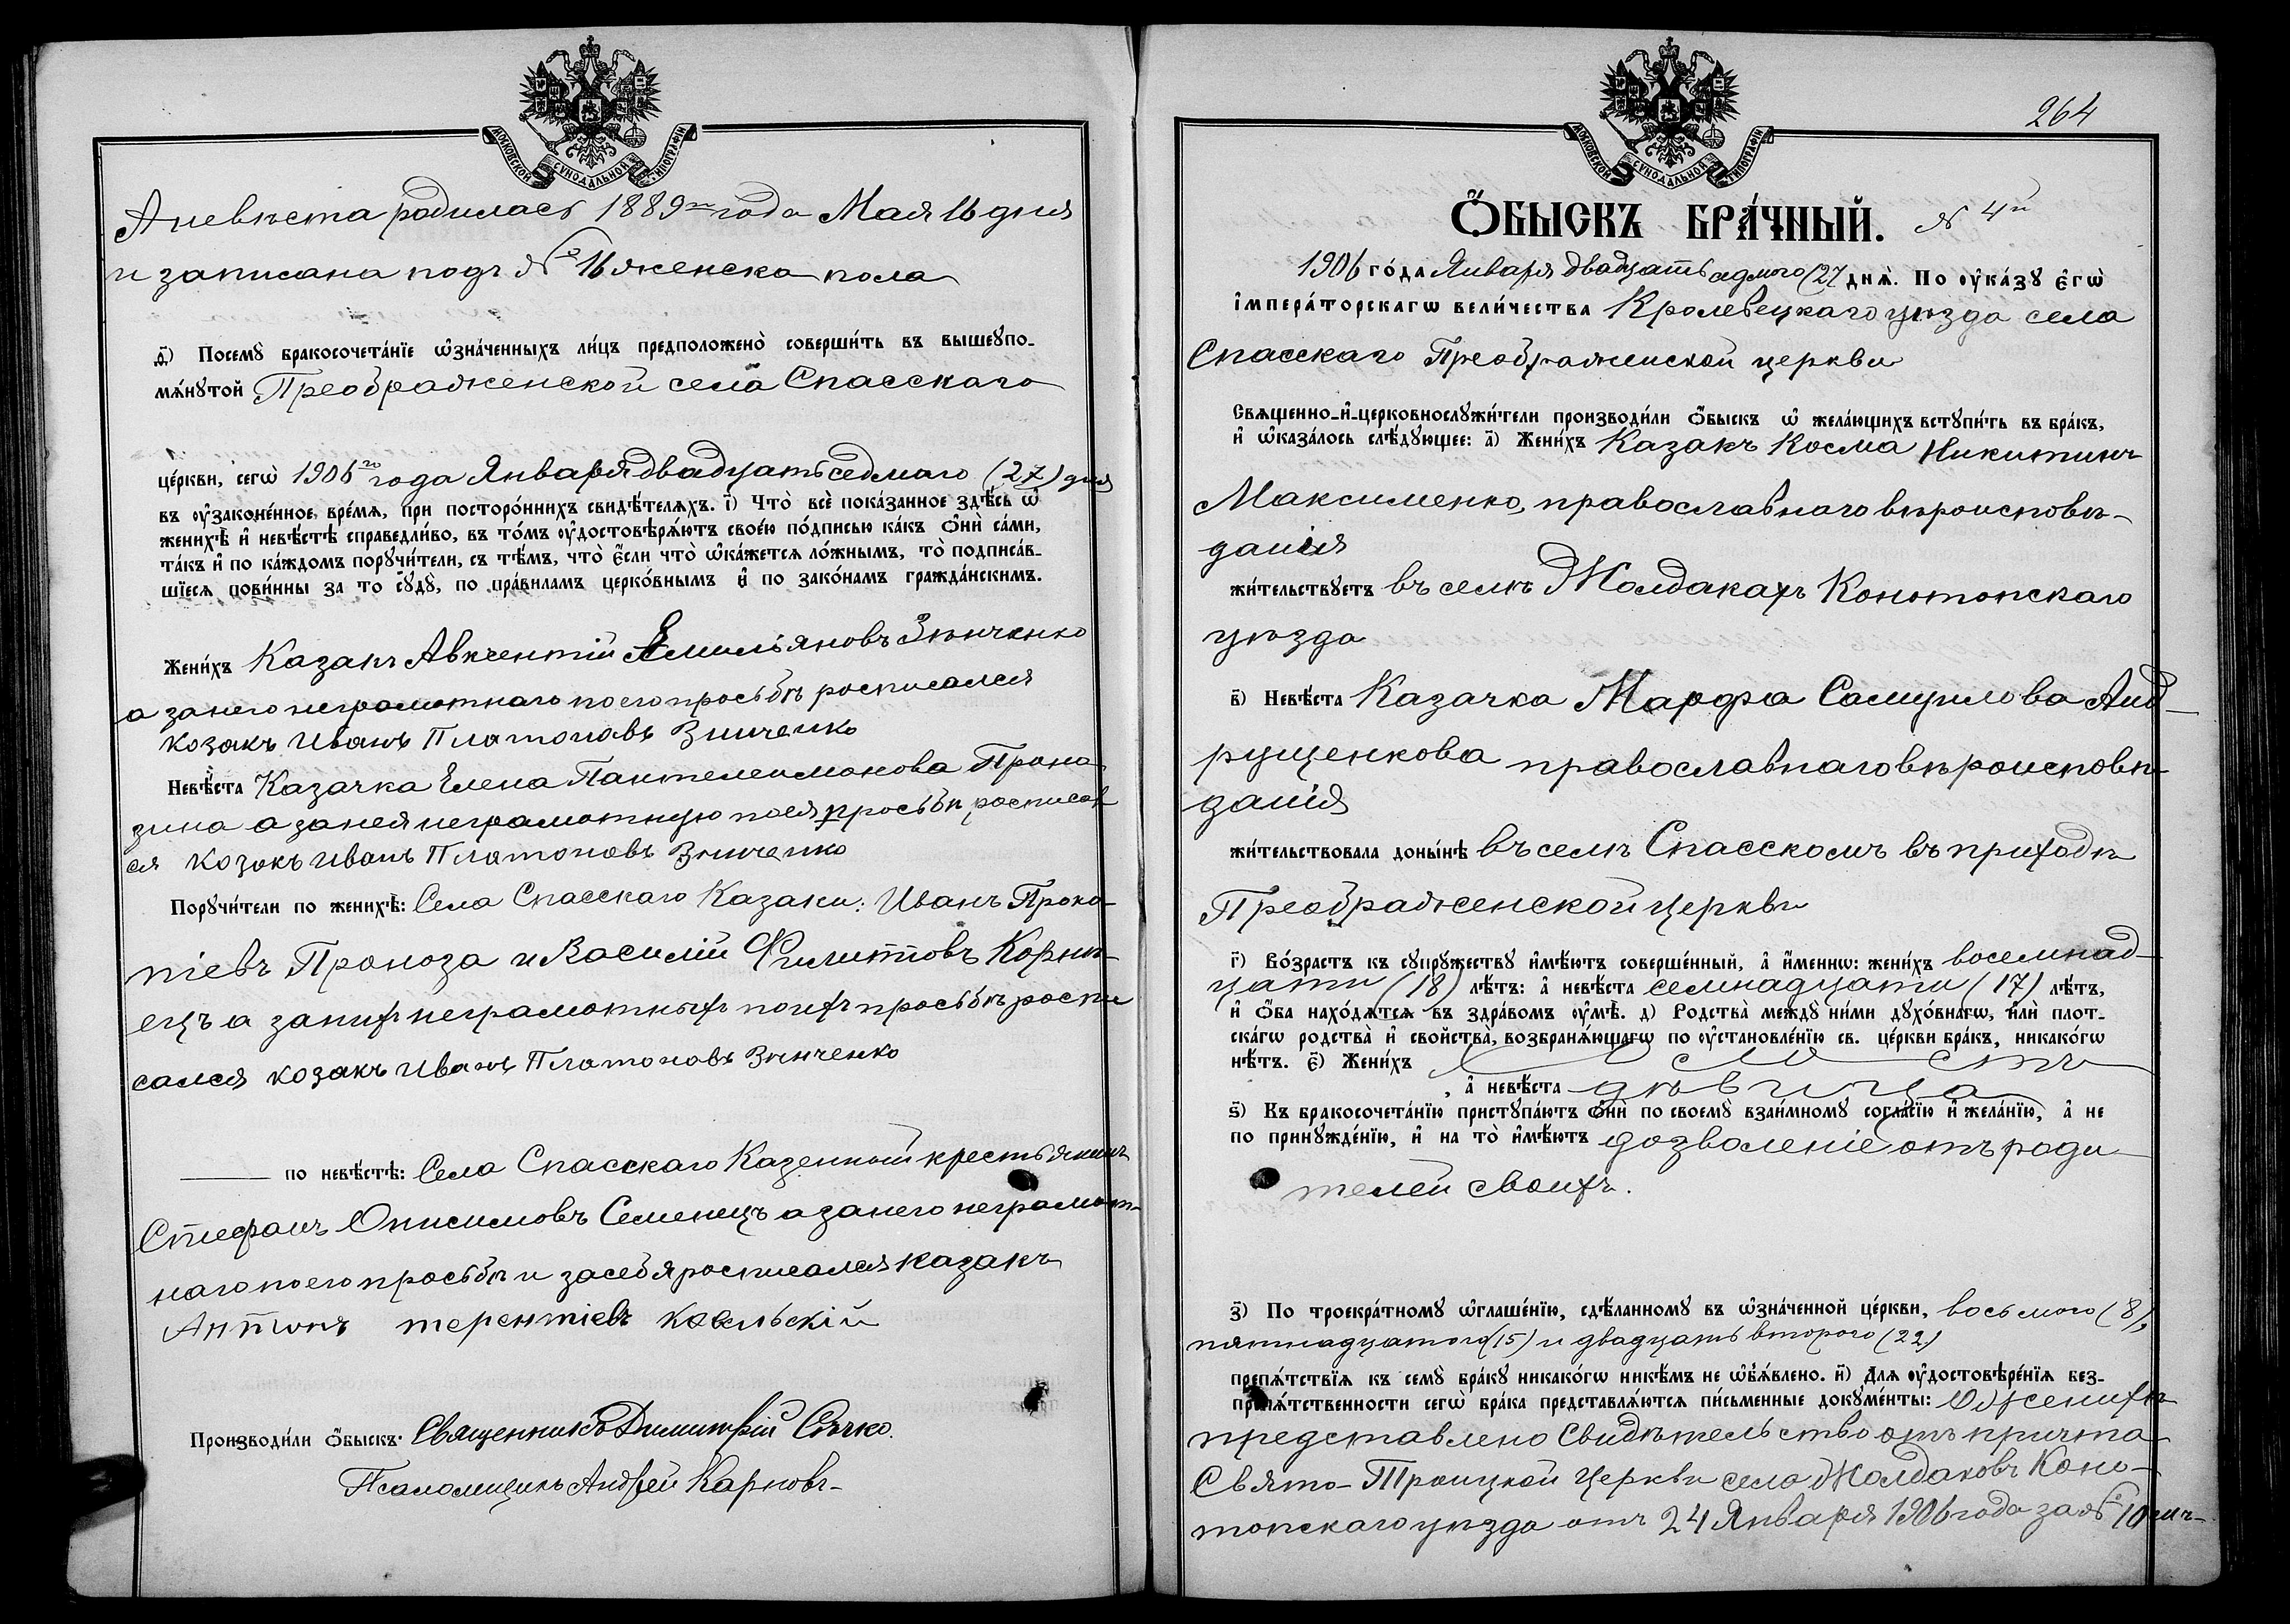 МОСКОВСКОЙ СѴНОДАЛЬНОЙ ТИПОГРАФІИ
А невѣста родилась 1889го года Мая 16 дня
и записана подъ № 16 женска пола
д҃) Посемꙋ̀ бракосочета́нїе ѡ҆зна́ченныхъ ли́цъ предположено̀ соверши́ть въ вышеꙋпо-
мѧ́нꙋтой Преображенской села Спасскаго
це́ркви, сегѡ̀ 1906го года Января двадцать седмаго (27) дня
въ ᲂу҆зако́ненное вре́мѧ, при посторо́ннихъ свидѣ́телѧхъ. і҃) Что̀ всѐ пока́занное здѣ́сь ѡ҆
женихѣ̀ и҆ невѣ́стѣ справедли́во, въ то́мъ ᲂу҆достовѣрѧ́ютъ свое́ю по́дписью ка́къ ѻ҆нѝ са́ми,
та́къ и҆ по ка́ждомъ порꙋчи́тели, съ тѣ́мъ, что̀ є҆́сли что̀ ѡ҆ка́жется ло́жнымъ, то̀ подписа́в-
шїеся пови́нны за то сꙋдꙋ̀, по пра́виламъ церко́внымъ и҆ по зако́намъ гражда́нскимъ.
Жени́хъ Казакъ Авксентій Емильяновъ Зѣнченко
а за него неграмотнаго по его просьбѣ росписался
козакъ Иванъ Платоновъ Зѣнченко
Невѣ́ста Казачка Елена Пантелеимонова Проно-
зина а за нея неграмотную по ея просьбѣ росписал
ся козакъ Иванъ Платоновъ Зѣнченко
Порꙋчи́тели по женихѣ̀: Села Спасскаго Казаки: Иванъ Проко-
піевъ Проноза и Василій Филипповъ Корнѣ-
ецъ а за нихъ неграмотныхъ по ихъ просьбѣ роспи
сался козакъ Иванъ Платоновъ Зѣнченко
по невѣ́стѣ: Села Спасскаго Казенный крестьянинъ
Стефанъ Онисимовъ Семенецъ а за него неграмот-
наго по его просьбѣ и за себя росписался казакъ
Антонъ терентіевъ
Производи́ли ѻ҆́быскъ: Священникъ Димитрій Сѣчко.
Псаломщикъ Андрей Карповъ
264
МОСКОВСКОЙ СѴНОДАЛЬНОЙ ТИПОГРАФІИ
Ѻ҆́БЫСКЪ БРА́ЧНЫЙ. № 4й
1906 го́да Января двадцать седмого (27) днѧ̀. По ᲂу҆ка́зꙋ є҆гѡ̀
і҆мпера́торскагѡ вели́чества Кролевецкаго уѣзда села
Спасскаго Преображенской церкви
Свѧщенно-и҆-церковнослꙋжи́тели производи́ли ѻ҆́быскъ ѡ҆ жела́ющихъ встꙋпи́ть въ бра́къ,
и҆ ѡ҆каза́лось слѣ́дꙋющее: а҃) Жени́хъ Казакъ Косма Никитинъ
Максименко, православнаго вѣроисповѣ-
данія
жи́тельствꙋетъ въ селѣ Жолдакахъ Конотопскаго
уѣзда
в҃) Невѣ́ста Казачка Марфа Самуилова Анд-
рущенкова православнаго вѣроисповѣ-
данія
жи́тельствовала доны́нѣ въ селѣ Спасскомъ въ приходѣ
Преображенской церкви
г҃) Во́зрастъ къ сꙋпрꙋ́жествꙋ и҆мѣ́ютъ соверше́нный, а҆ и҆́меннѡ: жени́хъ восемнад-
цати (18) лѣ́тъ: а҆ невѣ́ста семнадцати (17) лѣ́тъ,
и҆ ѻ҆́ба нахо́дятся въ здра́вомъ ᲂу҆мѣ̀. д) Родства̀ междꙋ̀ ни́ми дꙋхо́внагѡ, и҆лѝ плот-
ска́гѡ родства̀ и҆ свойства̀, возбранѧ́ющагѡ по ᲂу҆становле́нїю св. це́ркви бра́къ, никако́гѡ
нѣ́тъ. є҃) Жени́хъ холостъ
, а҆ невѣ́ста дѣвица
ѕ҃) Къ бракосочета́нїю пристꙋпа́ютъ ѻ҆нѝ по своемꙋ̀ взаи́мномꙋ согла́сїю и҆ жела́нїю, а҆ не
по принꙋжде́нїю, и҆ на то̀ и҆мѣ́ютъ дозволеніе отъ роди-
телей своихъ.
з҃) По троекра́тномꙋ ѡ҆глаше́нїю, сдѣ́ланномꙋ въ ѡ҆зна́ченной це́ркви, восьмого (8),
пятнадцатого (15) и двадцать второго (22)
препѧ́тствїѧ къ семꙋ̀ бра́кꙋ никако́гѡ никѣ́мъ не ѡ҆б̾ѧ́влено. и҃) Для ᲂу҆достовѣре́нїѧ без-
препѧ́тственности сегѡ̀ бра́ка представлѧ́ются пи́сьменные докꙋме́нты: О женихѣ
представлено Свидѣтельство отъ причта
Свято-Троицкой церкви села Жолдаковъ Коно-
топскаго уѣзда отъ 24 Января 1906 года за № 10